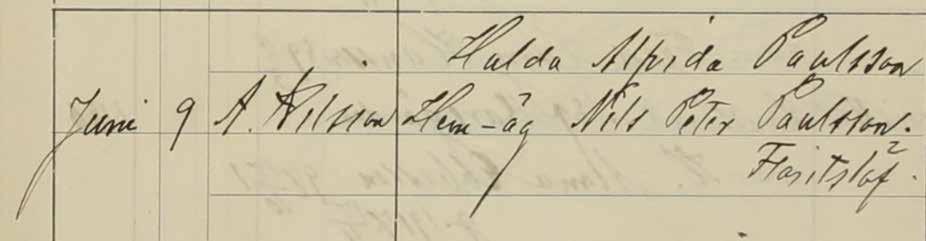 Hulda Alfrida Paulsson
Juni 9 A. Nilsson Hem-äg Nils Peter Paulsson.